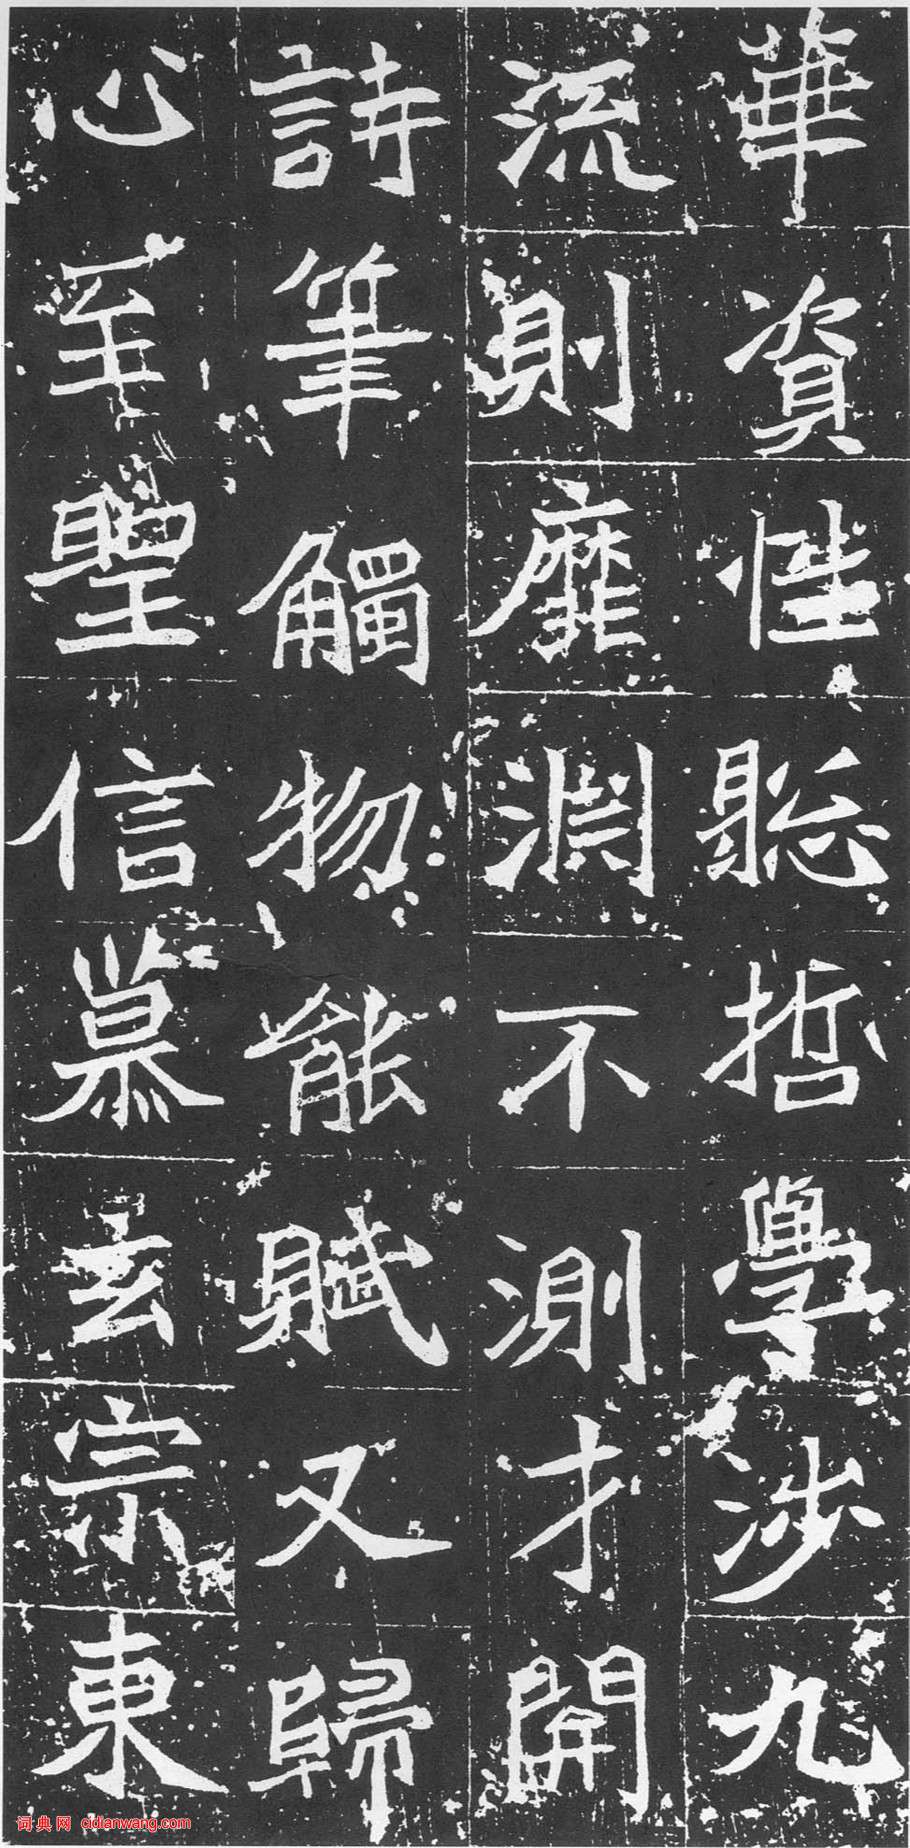 華資性聡哲學涉九
流則靡淵不測才開
詩筆觸物能賦又歸
心至聖信慕玄宗東
词典网 cidianwang.com